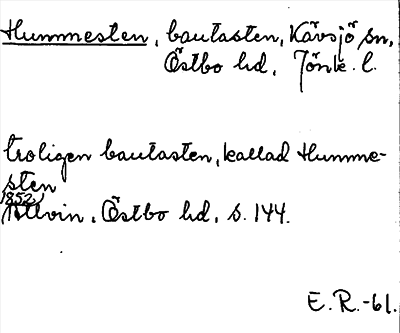 Hummesten, bautasten, Kävsjö sn,
Östbo hd, Jönk. l.
troligen bautasten, kallad Humme-
sten
1852
Allvin, Östbo hd, s. 144.
E. R. -61.